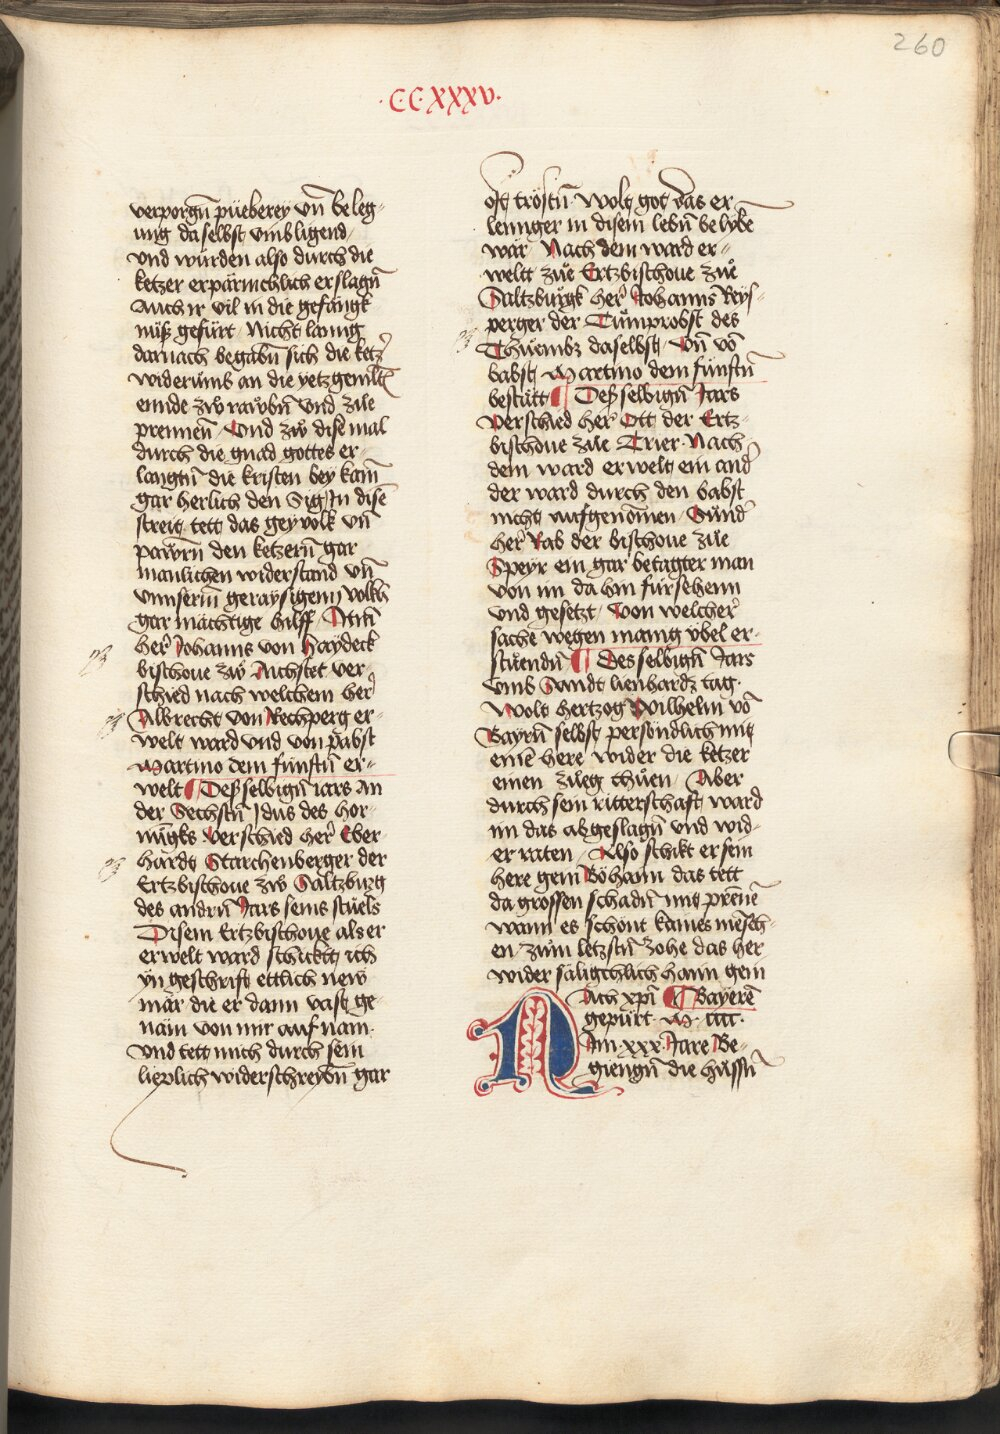 260
·C·C·XXXV·
verporgn̄ püeberey vn̄ beleg-
ung daselbst vmbligend/
vnd würden also durch die
ketzer erpärmchlich erslagn̄
Auch ir vil in die gefängk
nüß gefürt / Nicht lanng
darnach begabn̄ sich die ketzr̄
widerümb an die yetzgenillt
ennde zw̄ raẅbn̄ vnd züe
prennen̄ / Vnd zẅ dise mal
durch die gnad gottes er-
langtn̄ die kristen bey kam̄
gar herlich den Sig / In disē
streit tett das geyvolk vn̄
pawrn̄ den ketzern̄ gar
manlichen widerstand vn̄
vnnserm̄ geraysigem̄ volkh
gar mächtige hilff / Item̄
her̄ Johanns von Haydeck
bischoue zẅ Aichstet ver-
schied nach welchem her
Albrecht von Rechperg er-
welt ward vnd von pabst
Martino dem fünftn̄ er-
welt ¶ Deß selbign̄ iars an
der Sechstn̄ Idus des hor-
nūgks verschied her̄ Eber
hardt Starchenberger der
Ertzbischoue zẅ Saltzburg
des andrn̄ Jars seins stuels
Disem Ertzbischoue als er
erwelt ward schicktt ich
yn geschrift ettlich new
mär die er dann vast ge-
näm von mir auf nam·
vnd tett mich durch sein
lieplich widerschreybn̄ gar
oft tröstn̄ · Wolt got das er
lennger in disem lebn̄ belybē
wär Nach dem ward er-
welt züe Ertzbischoue züe
Saltzburgk her̄ Johanns Reys-
perger der Tumprobst des
Thuembz daselbst / Vn̄ vō
babst Martino dem fünftn̄
bestätt ¶ Deß selbign̄ Jars
verschied her̄ Ott der Ertz-
bischoue züe Trier · Nach
dem ward erwelt ein and̄
der ward durch den babst
nicht aufgenomen / Sūnd̄
her̄ Rab der bischoue züe
Speyr ein gar betagter man
von im da hin fürsehenn
vnd gesetzt / Von welcher̄
sache wegen manig vbel er-
stuendn̄ ¶ Des selbign̄ Jars
vmb Sandt lienhardz tag·
Wolt hertzog Wilhelm vō
Bayrn̄ selbst persöndlich mit
einē here wider die ketzer
einen zueg thuen / Aber
durch sein ritterschaft ward
im das abgeslagn̄ vnd wid-
erraten / Also schikt er sein
here gem Böhaim das tett
da grossen schadn̄ mit prēnē
wann es schont kaines mēsch-
en zum letzstn̄ zohe das her
wider säligchlich haim gem
Nach xpi ¶ Bayerē
gepurt · M· CCCC·
Im xxx Jare Be-
giengn̄ die hussn̄